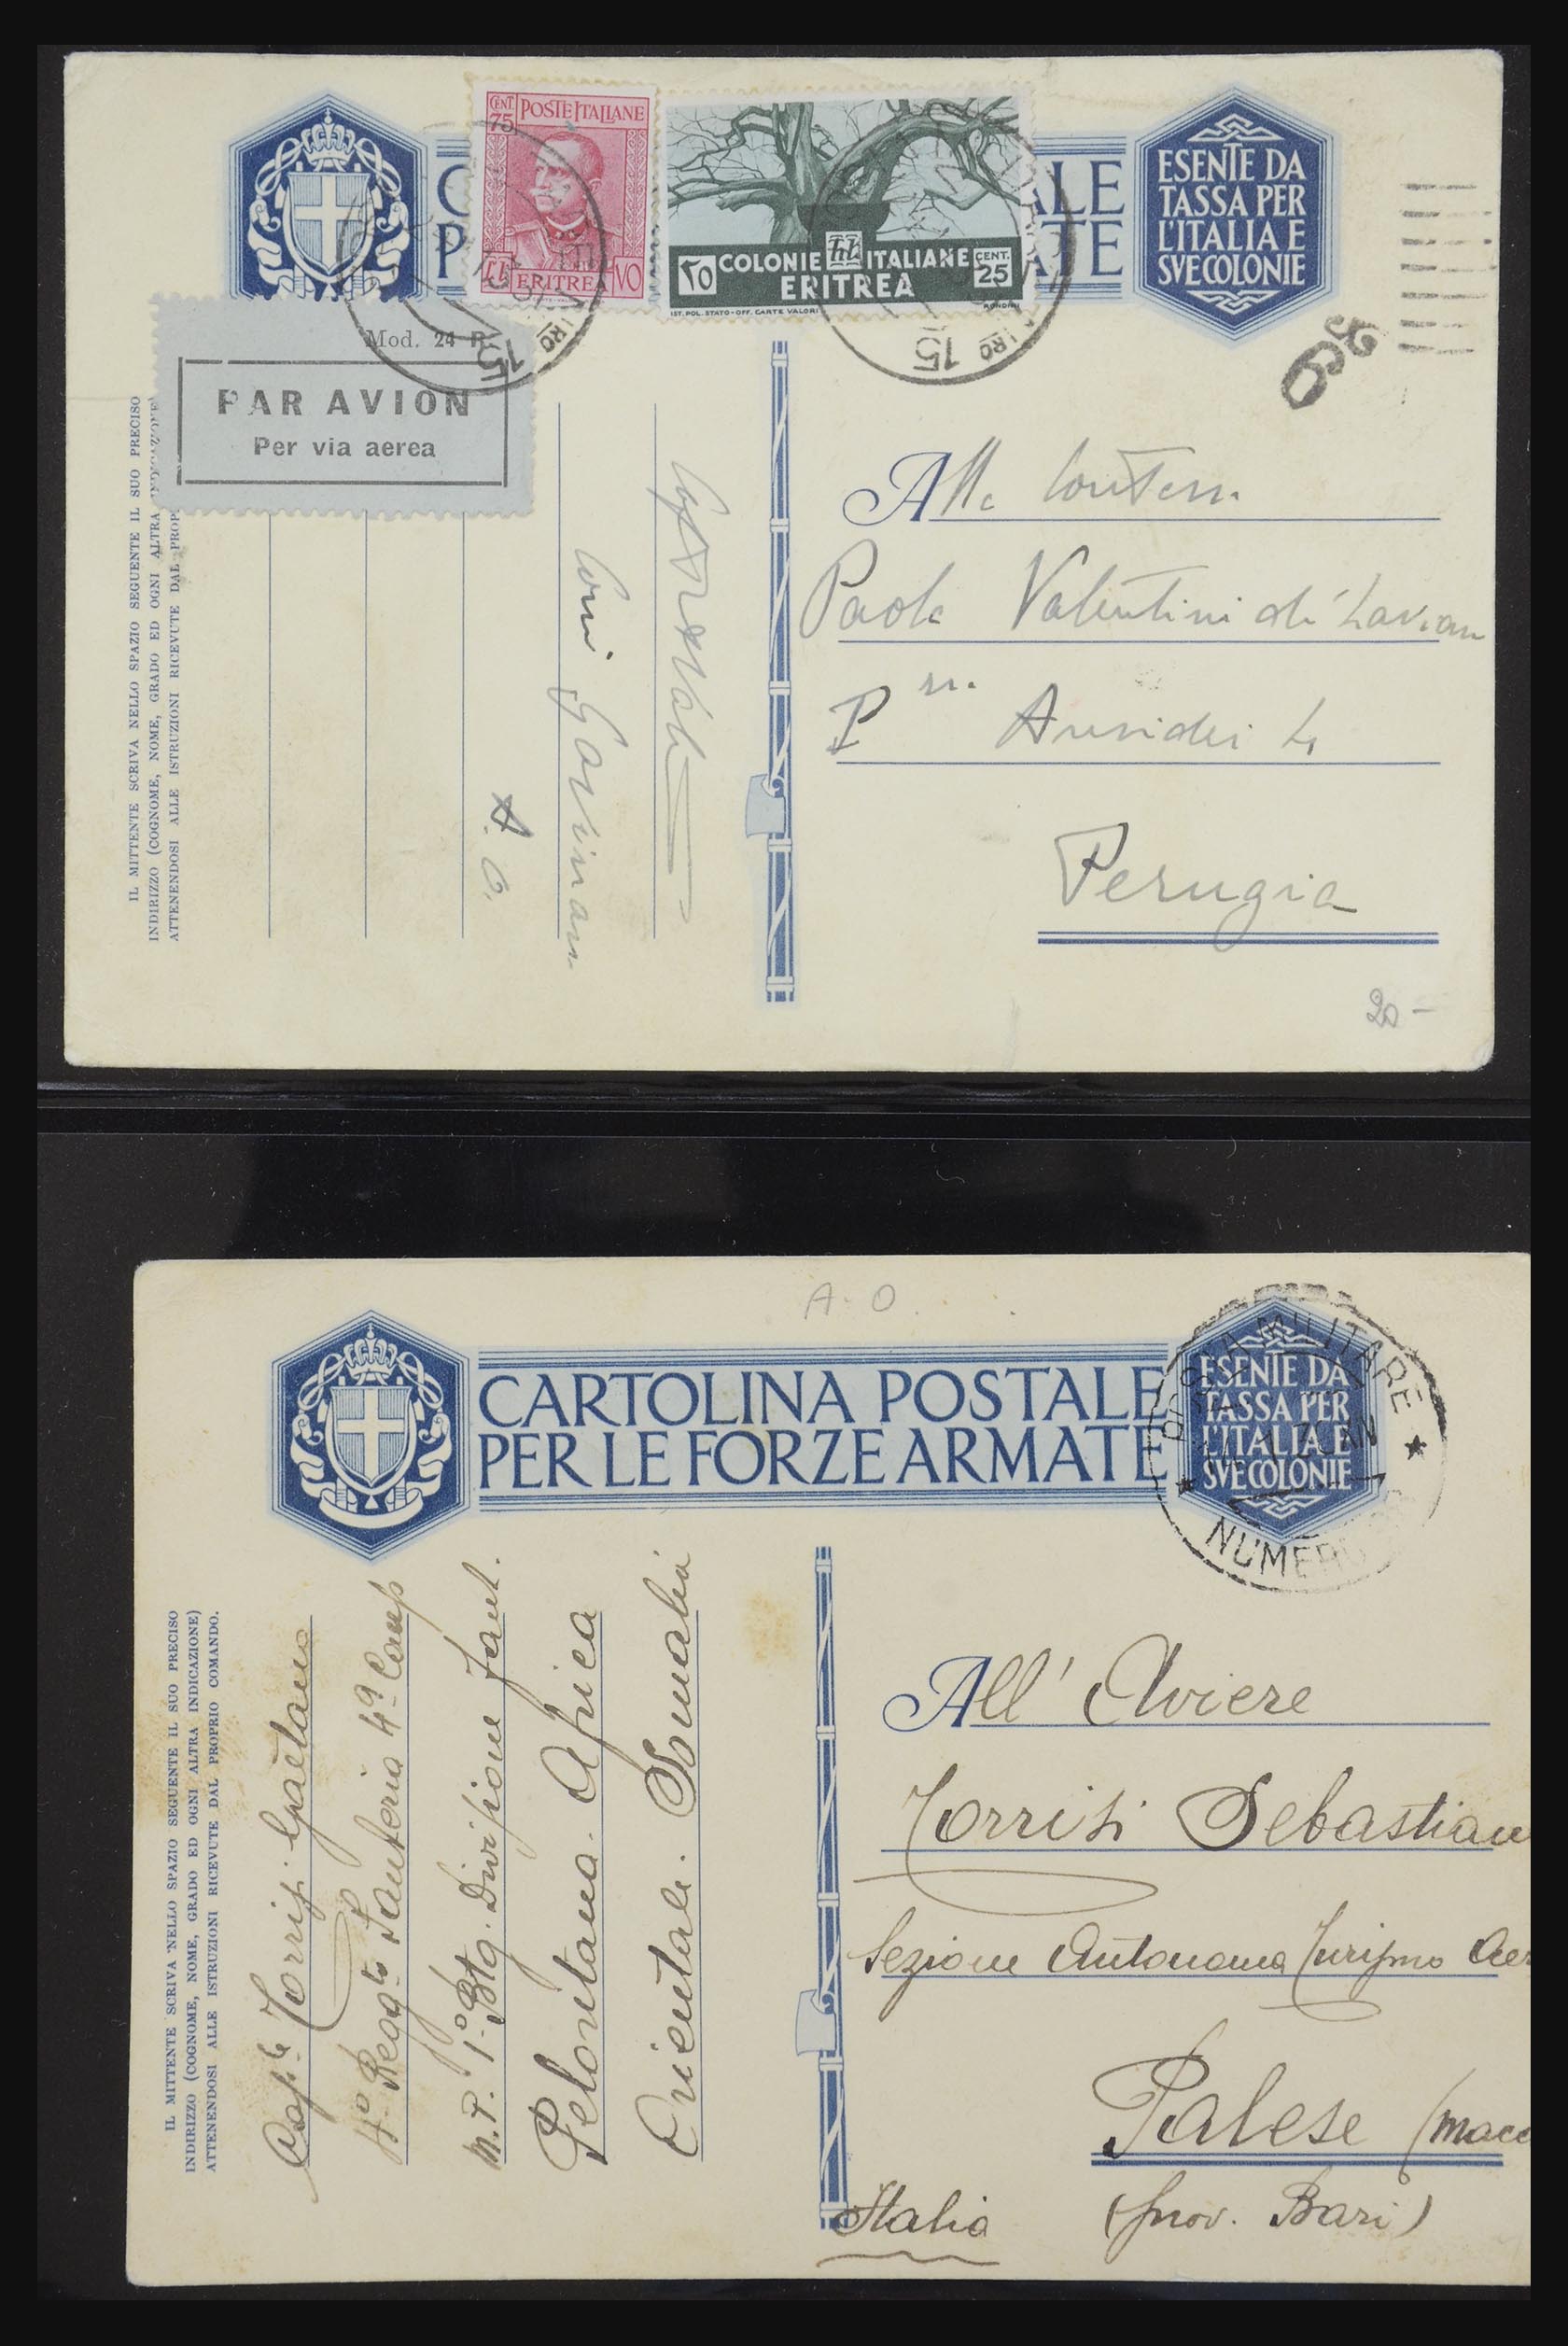 CENT. 75 POSTE ITALIANE
ERITREA
٢٥ COLONIE ITALIANE CENT. 25
ERITREA
IST. POL. STATO-OFF. CARTE VALORI
ALE
ATE
ESENTE DA
TASSA PER
L'ITALIA E
SVE COLONIE
Mod. 24
PAR AVION
Per via aerea
IL MITTENTE SCRIVA NELLO SPAZIO SEGUENTE IL SUO PRECISO
INDIRIZZO (COGNOME, NOME, GRADO ED OGNI ALTRA INDICAZIONE)
ATTENENDOSI ALLE ISTRUZIONI RICEVUTE DAL PROP
A. O.
Alla
Paola Valentini di
Perugia
20-
A. O.
CARTOLINA POSTALE
PER LE FORZE ARMATE
ESENTE DA
TASSA PER
L'ITALIA E
SVE COLONIE
POSTA MILITARE
NUMERO
IL MITTENTE SCRIVA NELLO SPAZIO SEGUENTE IL SUO PRECISO
INDIRIZZO (COGNOME, NOME, GRADO ED OGNI ALTRA INDICAZIONE)
ATTENENDOSI ALLE ISTRUZIONI RICEVUTE DAL PROPRIO COMANDO.
Cap.le Torrisi Gaetano
4º Regg.to Fanteria 4ª Comp
M.P. 1º Btg. Divisione Fant.
Peloritana. Africa
Orientale. Somalia
All' Aviere
Torrisi Sebastian
Sezione Autonoma Turismo Aer
Palese (Macc
Italia (prov. Bari)